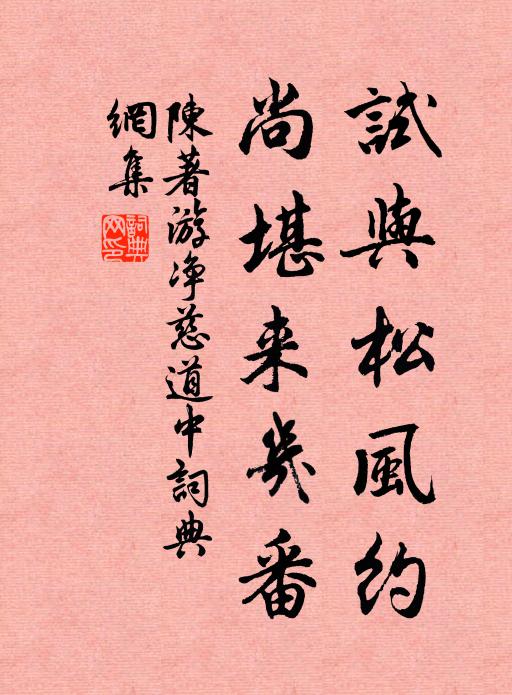 試與松風約
尚堪来幾番
陳著游净慈道中詞典
網集
詞典
网印